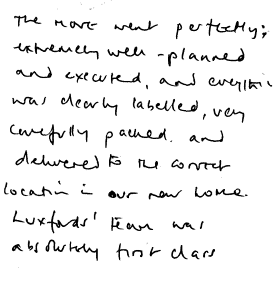 The move went perfectly;
extremely well-planned
and executed, and everything
was clearly labelled, very
carefully packed. and
delivered to the correct
location in our new home.
Luxfords' team was
absolutely first class